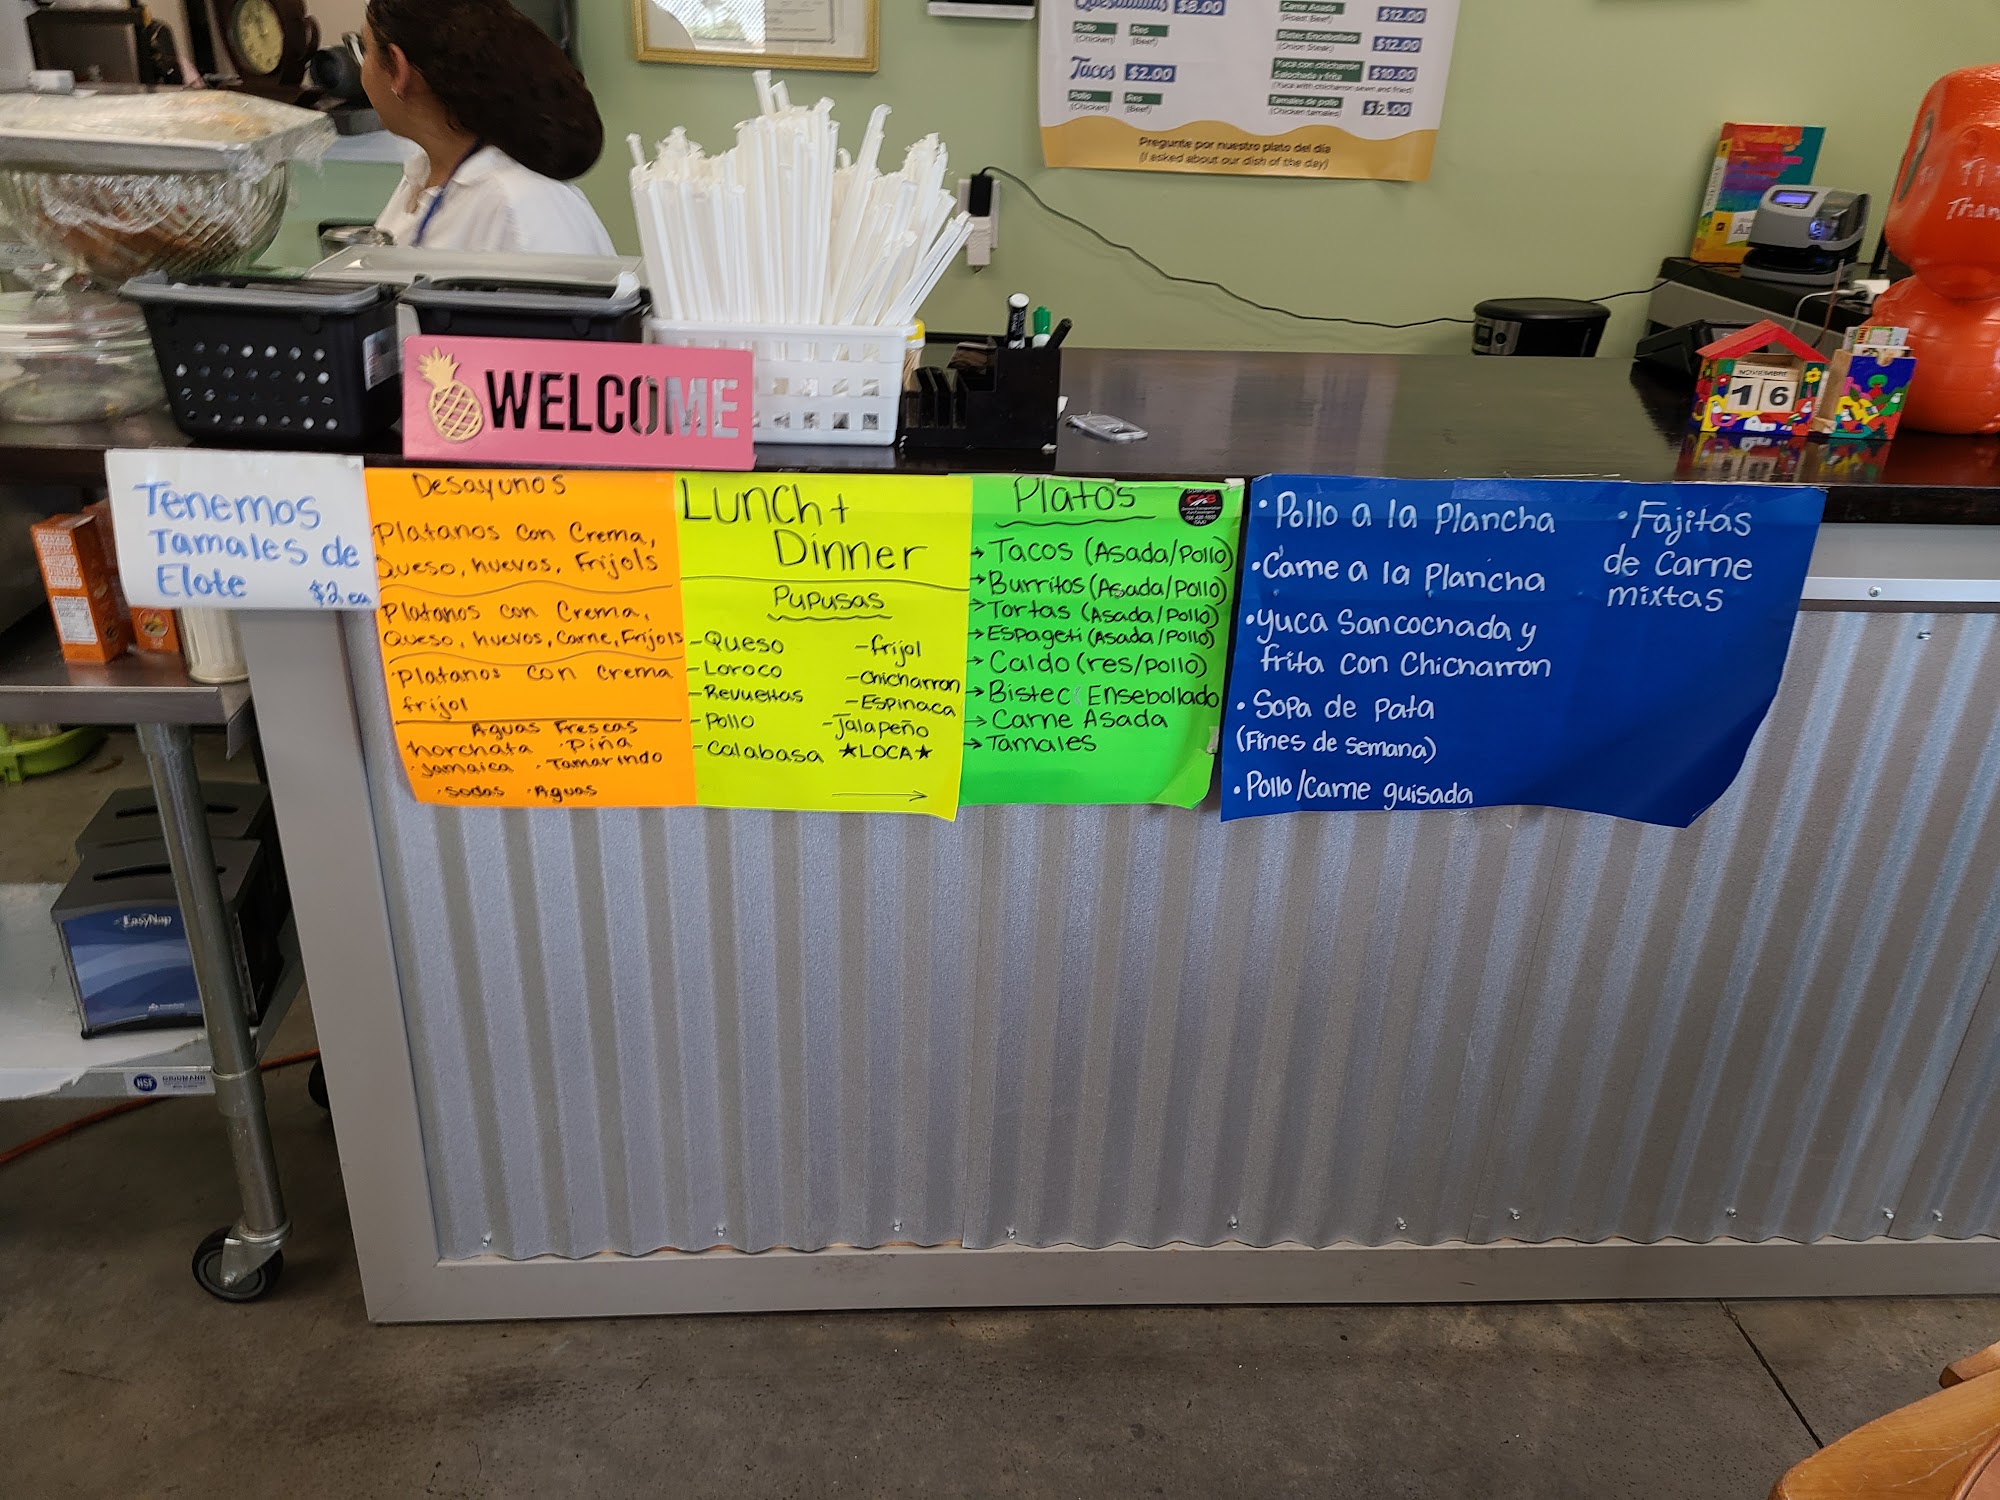 Quesadillas $8.00
Pollo Res
(Chicken) (Beef)
Tacos $2.00
Pollo Res
(Chicken) (Beef)
Carne Asada $12.00
(Roast Beef)
Bistec Encebollado $12.00
(Onion Steak)
Yuca con chicharrón
Salochada y frita $10.00
Tamales de pollo $2.00
(Chicken tamales)
Pregunte por nuestro plato del día
(I asked about our dish of the day)
WELCOME
NOVIEMBRE
16
Tenemos
Tamales de
Elote $2 ea
Desayunos
Platanos con Crema,
Queso, huevos, Frijols
Platanos con Crema,
Queso, huevos, Carne, Frijols
Platanos con Crema
frijol
Aguas Frescas
horchata · Piña
· Jamaica · Tamarindo
· Sodas · Aguas
Lunch +
Dinner
Pupusas
- Queso
- Loroco
- Revueltas
- Pollo
- Calabasa
- frijol
- Chicharron
- Espinaca
- Jalapeño
★LOCA★
Platos
→ Tacos (Asada/Pollo)
→ Burritos (Asada/Pollo)
→ Tortas (Asada/Pollo)
→ Espageti (Asada/Pollo)
→ Caldo (res/pollo)
→ Bistec Ensebollado
→ Carne Asada
→ Tamales
• Pollo a la Plancha
• Carne a la Plancha
• Yuca Sancochada y
frita con Chicharron
• Sopa de Pata
(Fines de semana)
• Pollo/Carne guisada
• Fajitas
de Carne
mixtas
EasyNap
NSF